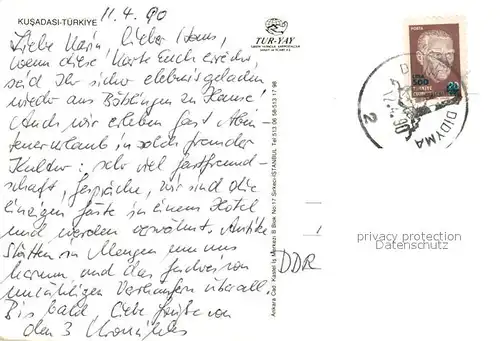 KUŞADASI-TÜRKİYE
11.4.90
Liebe Karin, Lieber Hans,
wenn diese Karte Euch erreicht,
seid Ihr sicher erlebnisgeladen
wieder aus Böblingen zu Hause!
Auch wir erleben fast Aben-
teuerurlaub in solch fremder
Kultur: sehr viel Gastfreund-
schaft, Gespräche, wir sind die
einzigen Gäste in einem Hotel
und werden verwöhnt. Antike
Stätten in Mengen um uns
herum und das Gadvei von
unzähligen Verkäufern überall.
Bis bald, liebe Grüße von
den 3
TUR-YAY
Ankara Cad. Kadel İş Merkezi B Blok No:17 Sirkeci-İSTANBUL Tel: 513 96 58-513 17 98
POSTA
500
TÜRKİYE
DIDYMA
12.4.90
2
DDR
privacy protection
Datenschutz